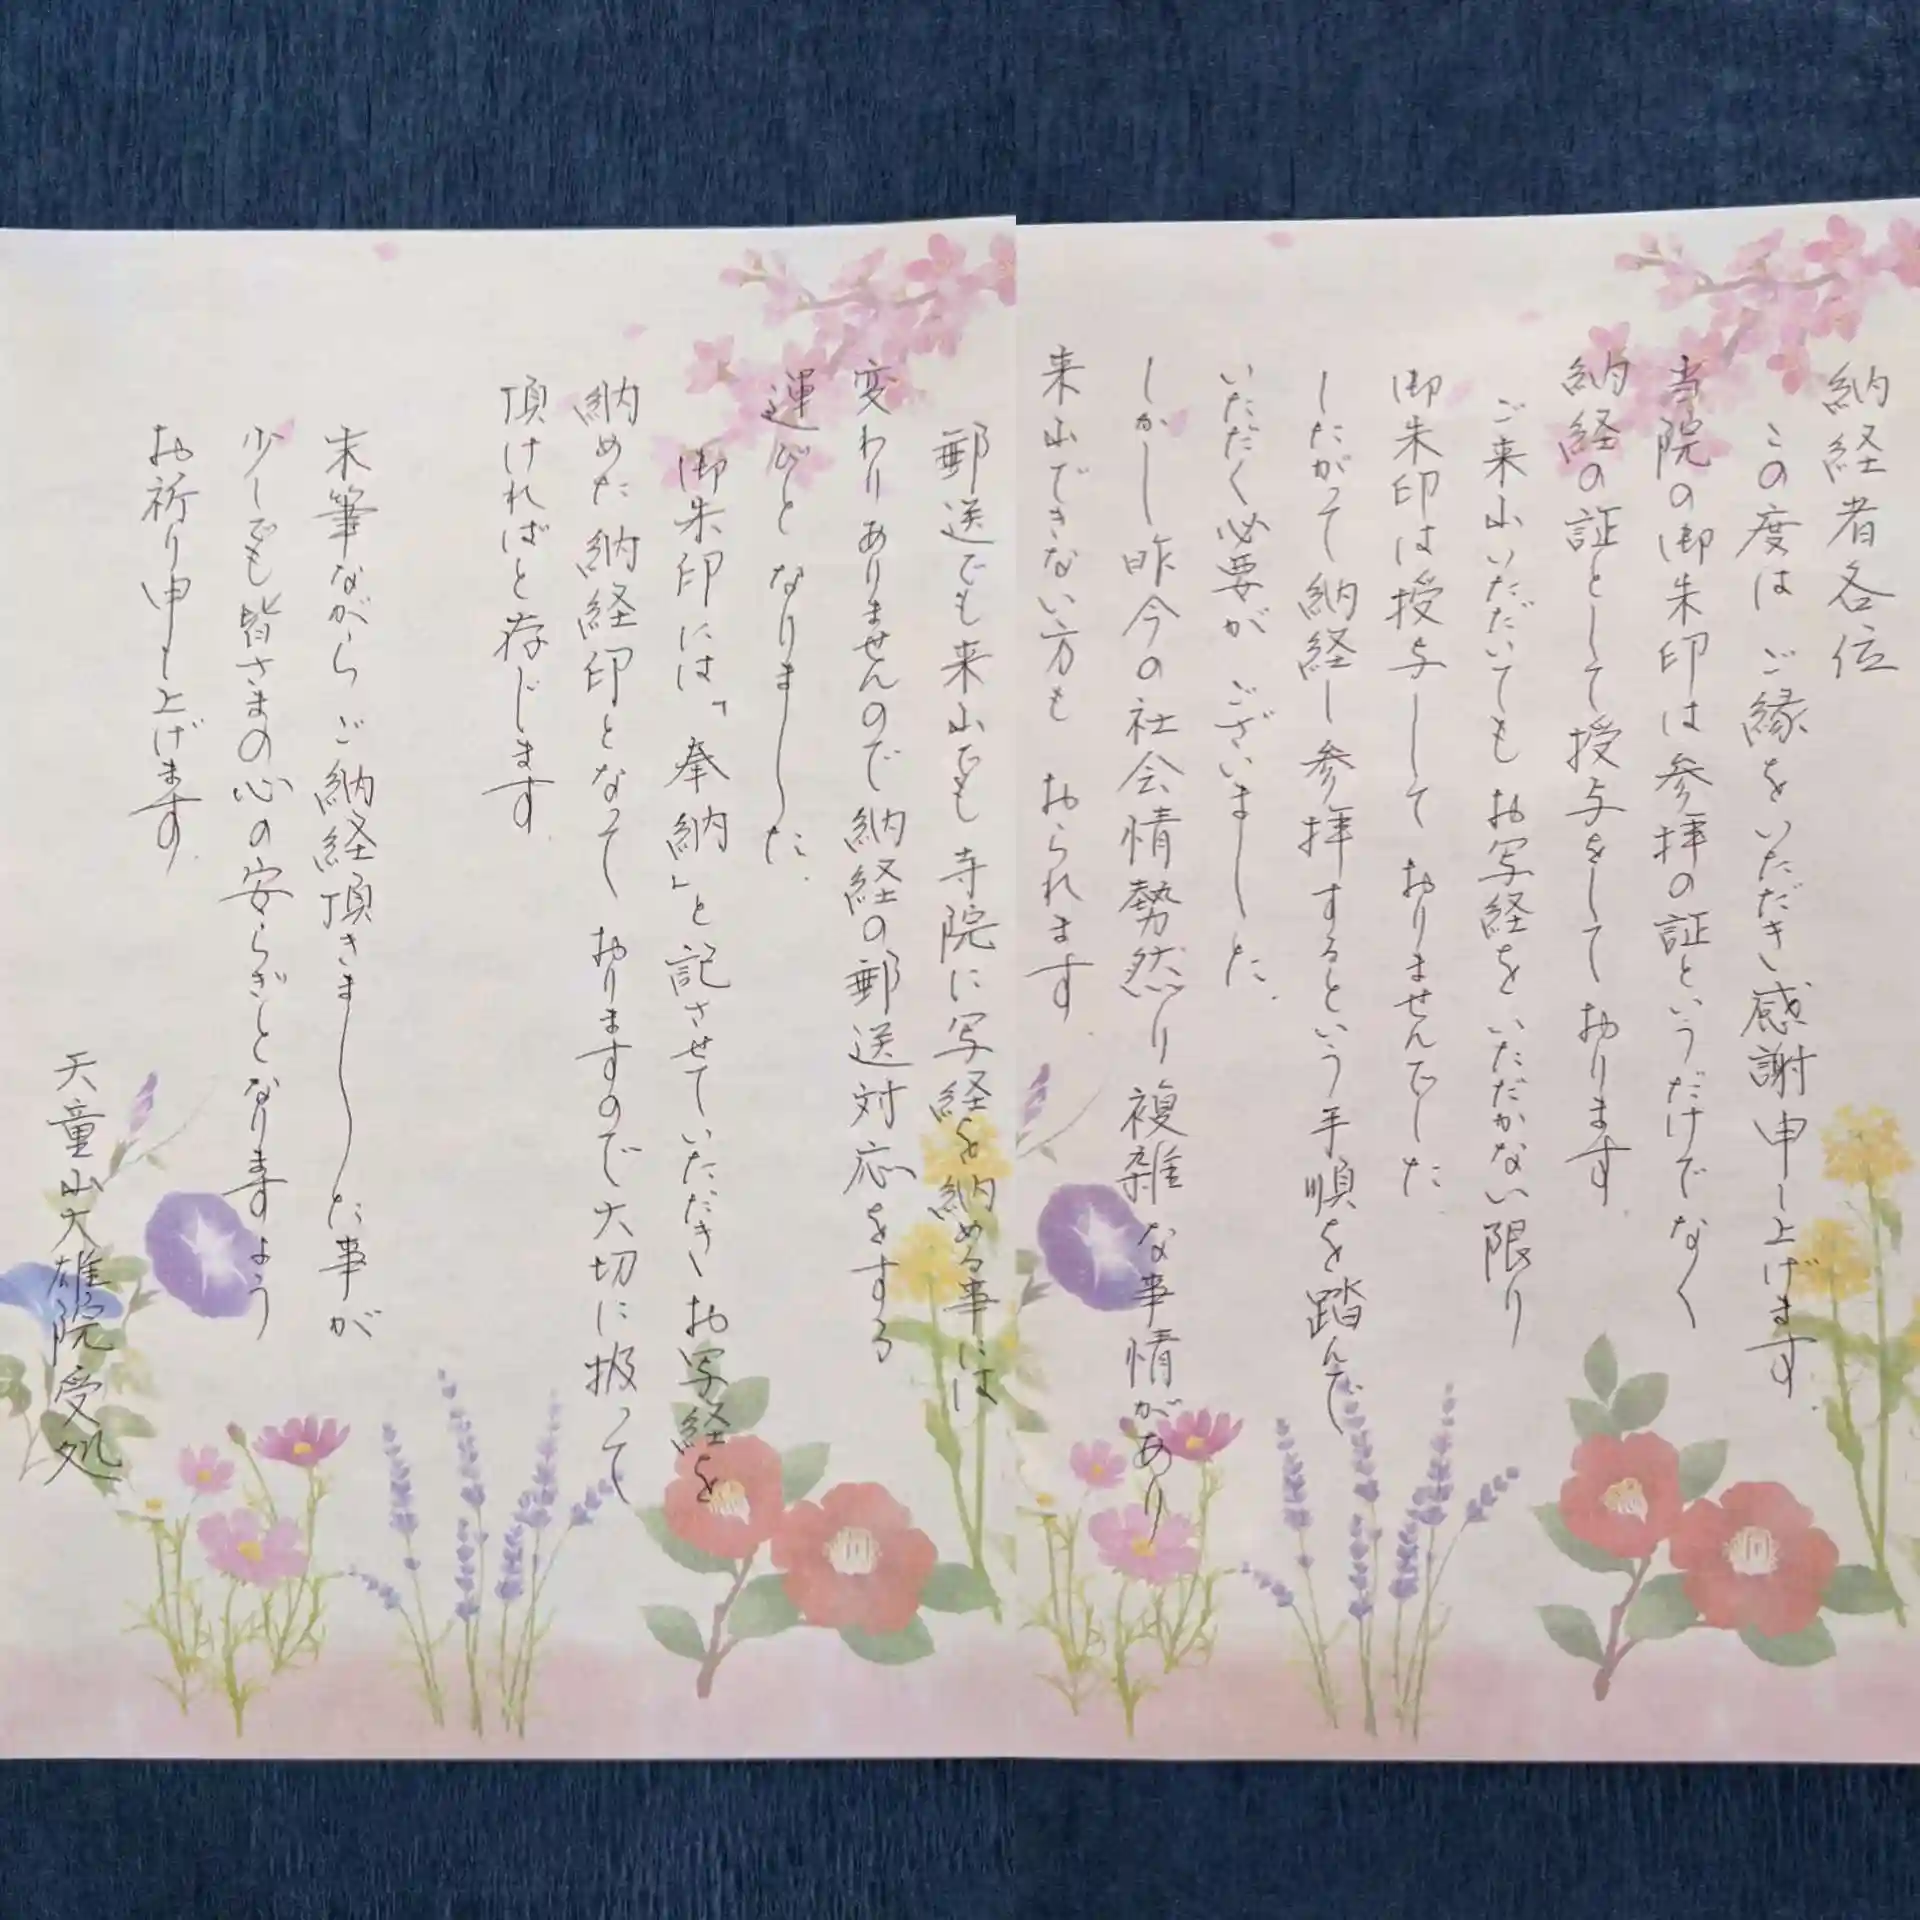 納経者各位
この度は ご縁をいただき感謝申し上げます
当院の御朱印は参拝の証というだけでなく
納経の証として授与をして おります
ご来山いただいても お写経をいただかない限り
御朱印は授与して おりませんでした
したがって納経し参拝するという手順を踏んで
いただく必要が ございました.
しかし昨今の社会情勢然り複雑な事情があり
来山できない方も おられます
郵送でも来山でも寺院に写経を納める事には
変わりありませんので納経の郵送対応をする
運びと なりました.
御朱印には「奉納」と記させていただき お写経を
納めた納経印となって おりますので大切に扱って
頂ければと存じます
末筆ながら ご納経頂きました事が
少しでも皆さまの心の安らぎとなりますよう
お祈り申し上げます
天童山大雄院受処